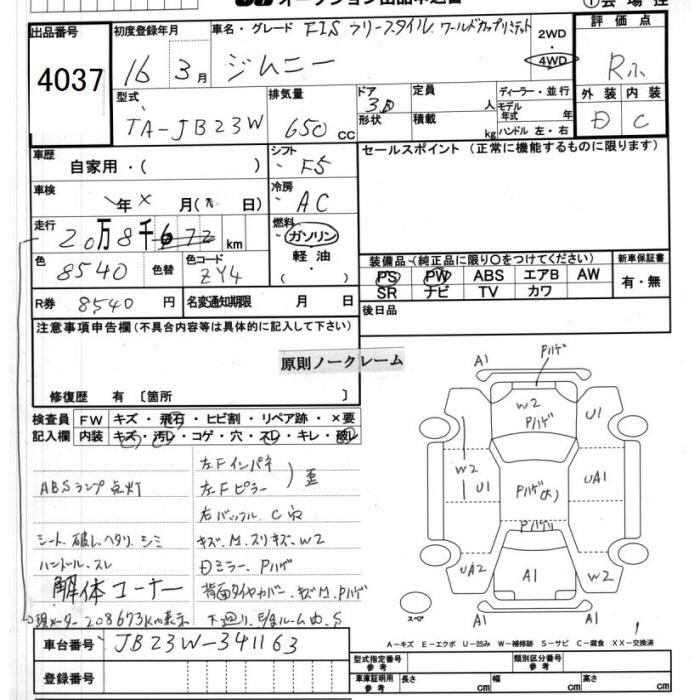 オークション出品申込書
①会場控
出品番号
4037
初度登録年月
16 3月
車名・グレード FIS フリースタイル ワールドカップリミテット
ジムニー
2WD
4WD
評価点
R
外装 内装
D C
型式
TA-JB23W
排気量
650 CC
ドア
3D
形状
定員
人
積載
kg
ディーラー・並行
モデル年式 年
ハンドル 左・右
車歴
自家用・( )
シフト
F5
セールスポイント (正常に機能するものに限ります)
車検
年 × 月( 日)
冷房
AC
走行
20万8千672 km
燃料
ガソリン
軽油
・( )
色
8540
色替
色コード
ZY4
装備品 (純正品に限り○をつけてください)
新車保証書
PS PW ABS エアB AW
SR ナビ TV カワ
有・無
R券 8540 円
名変通知期限 月 日
後日品
注意事項申告欄 (不具合内容等は具体的に記入して下さい)
原則ノークレーム
修復歴 有 〔箇所 〕
検査員記入欄
FW キズ・飛石・ヒビ割・リペア跡・×要
内装 キズ・汚レ・コゲ・穴・スレ・キレ・破レ
左Fインパネ
左Fピラー
歪
ABSランプ点灯
右バッフル C穴
シート、破レ、ヘタリ、シミ
キズ、M、スリキズ、W2
ハンドル、スレ
Dミラー、Pハゲ
解体コーナー
背面タイヤカバー、キズM、Pハゲ
現メーター208673km表示
下廻り、
ルーム内、S
車台番号 JB23W-341163
登録番号
A1
Pハゲ
W2
Pハゲ
U1
W2
U1
Pハゲ(大)
UA1
Pハゲ
UA2
A1
W2
A1
A1
スペア
A-キズ E-エクボ U-凹み W-補修跡 S-サビ C-腐食 XX-交換済
型式指定番号 参考
類別区分番号 参考
車庫証明用 参考
長さ cm
幅 cm
高さ cm